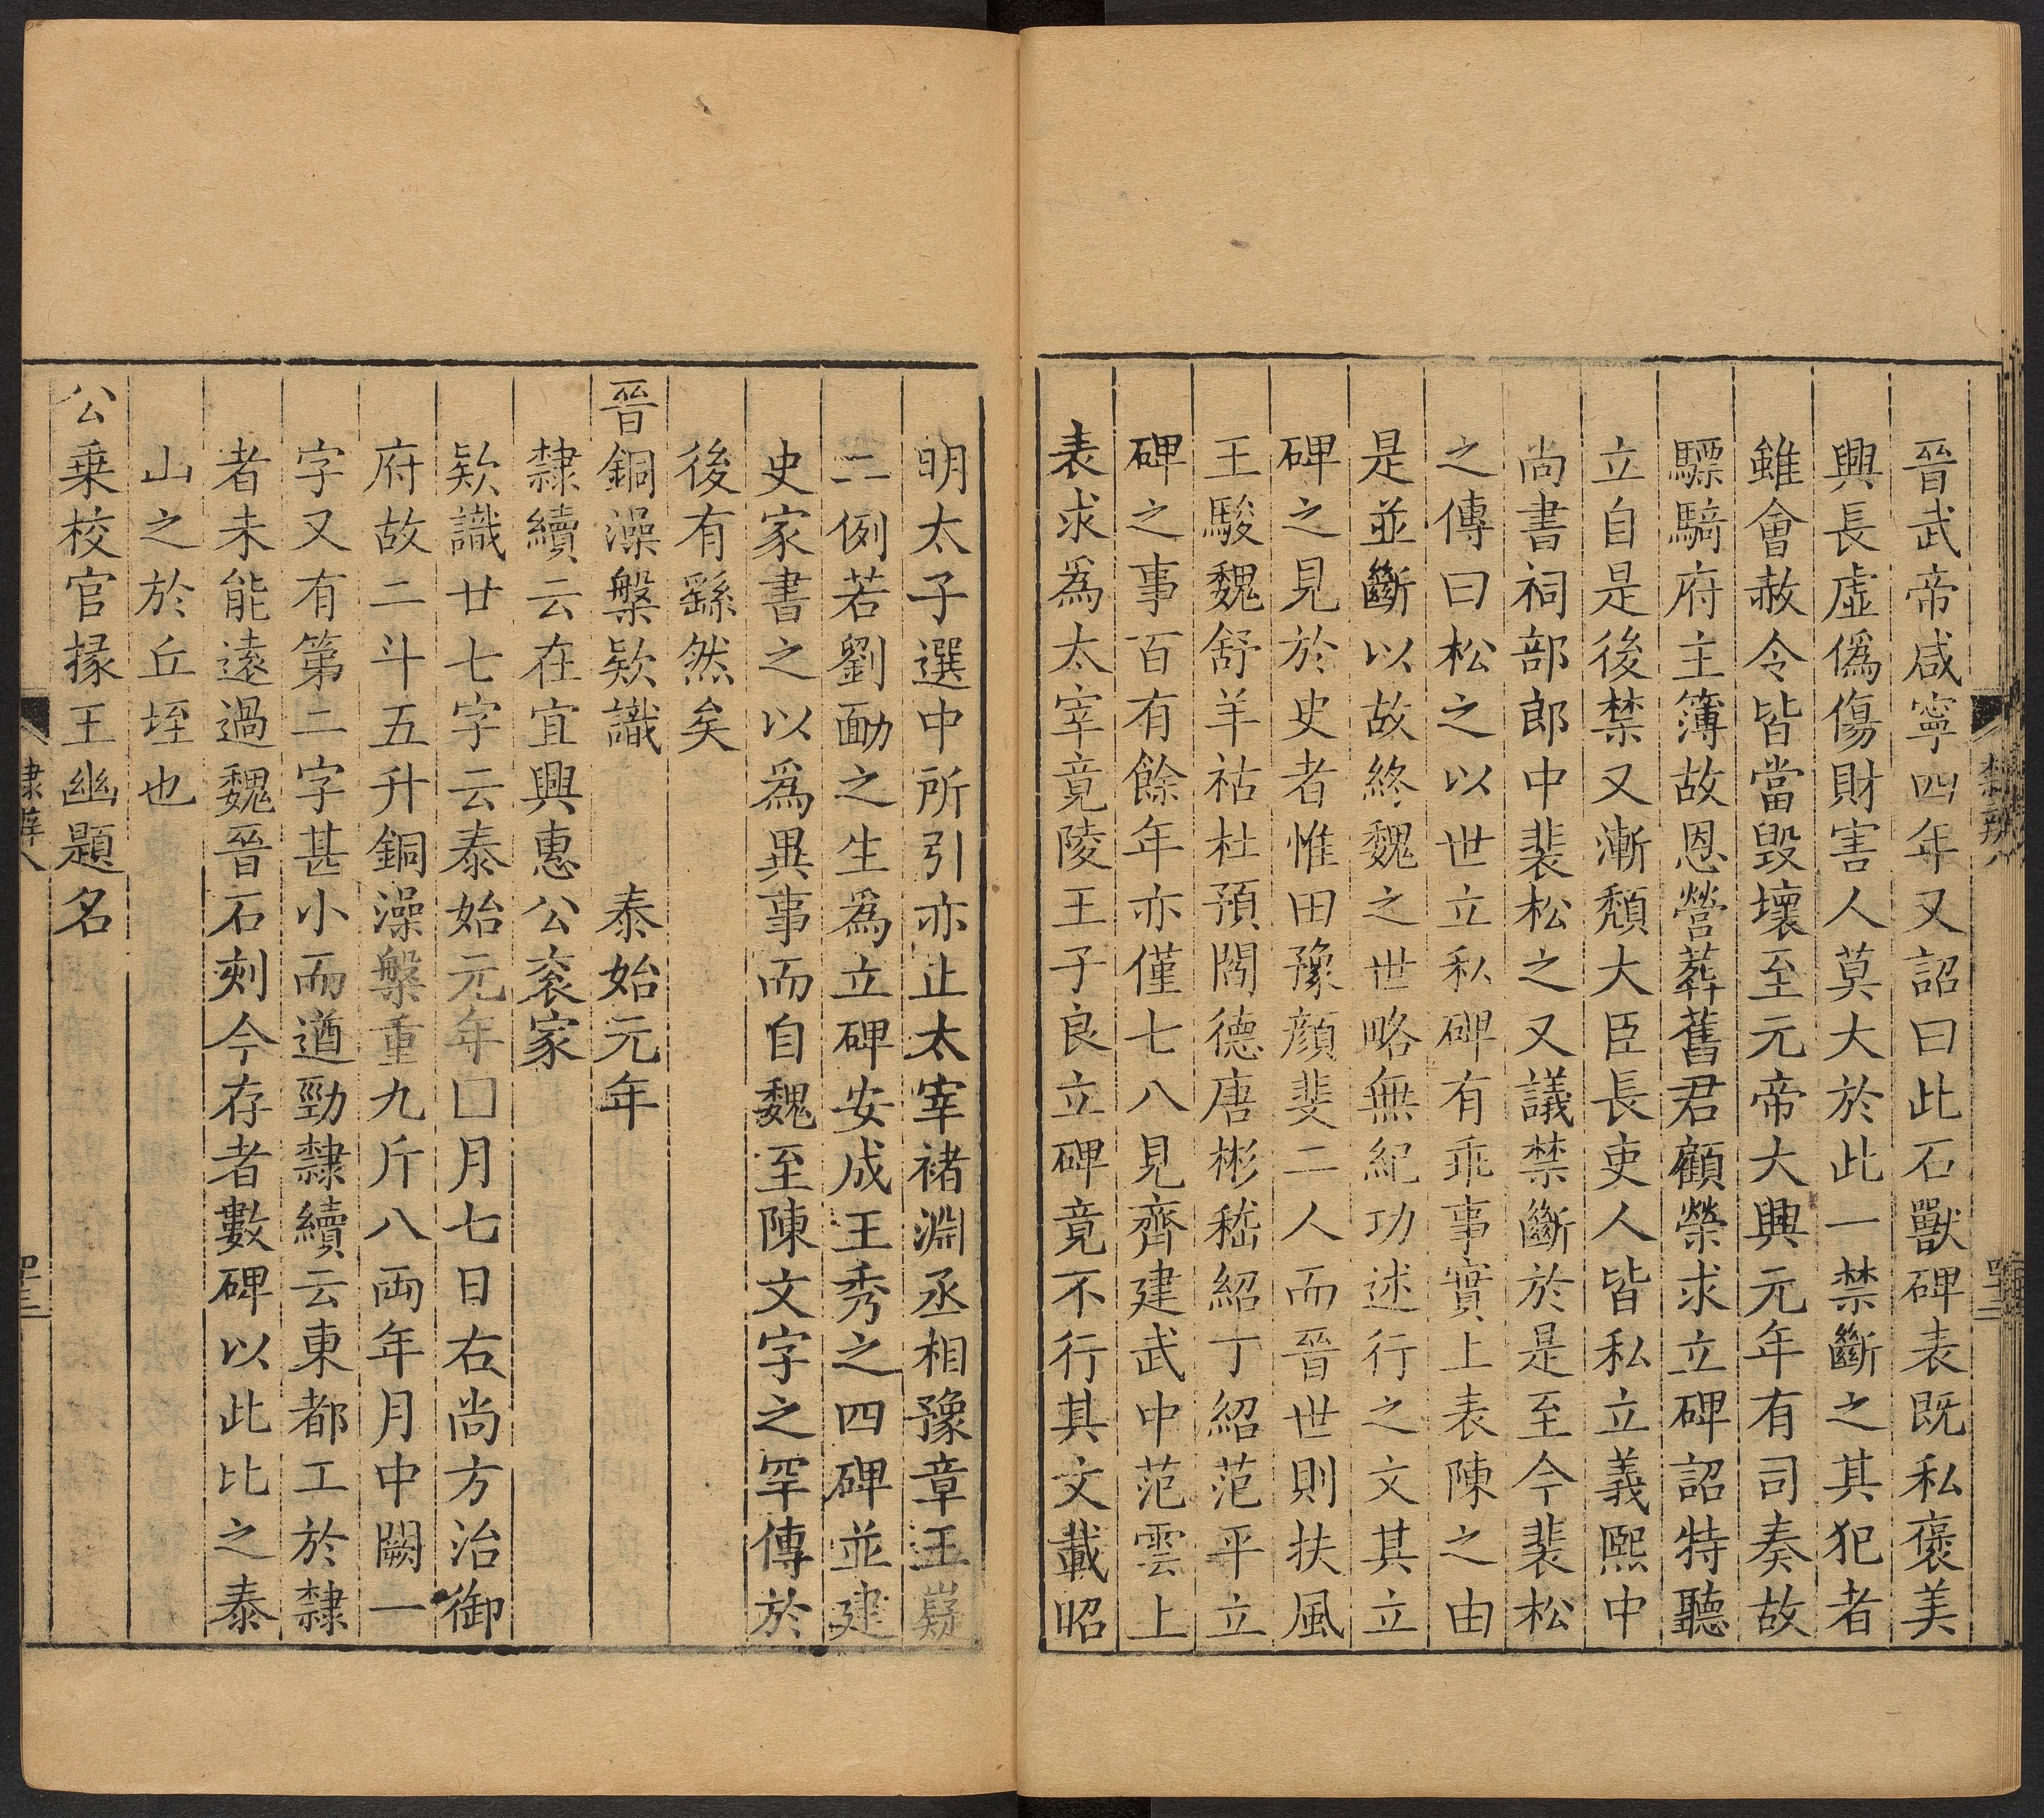 晉武帝咸寧四年又詔曰此石獸碑表既私褒美
興長虛偽傷財害人莫大於此一禁斷之其犯者
雖會赦令皆當毀壞至元帝大興元年有司奏故
驃騎府主簿故恩營葬舊君顧榮求立碑詔特聽
立自是後禁又漸頹大臣長吏人皆私立義熙中
尚書祠部郎中裴松之又議禁斷於是至今裴松
之傳曰松之以世立私碑有乖事實上表陳之由
是並斷以故終魏之世略無紀功述行之文其立
碑之見於史者惟田豫顏斐二人而晉世則扶風
王駿魏舒羊祜杜預閻德唐彬嵇紹丁紹范平立
碑之事百有餘年亦僅七八見齊建武中范雲上
表求為太宰竟陵王子良立碑竟不行其文載昭
隸辨八
四十二
明太子選中所引亦止太宰褚淵丞相豫章王嶷
二例若劉勔之生為立碑安成王秀之四碑並建
史家書之以為異事而自魏至陳文字之罕傳於
後有繇然矣
晉銅澡槃欵識 泰始元年
隸續云在宜興惠公衮家
欵識廿七字云泰始元年□月七日右尚方治御
府故二斗五升銅澡槃重九斤八兩年月中闕一
字又有第二字甚小而遒勁隸續云東都工於隸
者未能遠過魏晉石刻今存者數碑以此比之泰
山之於丘垤也
公乗校官掾王幽題名
隸辨八
四十三